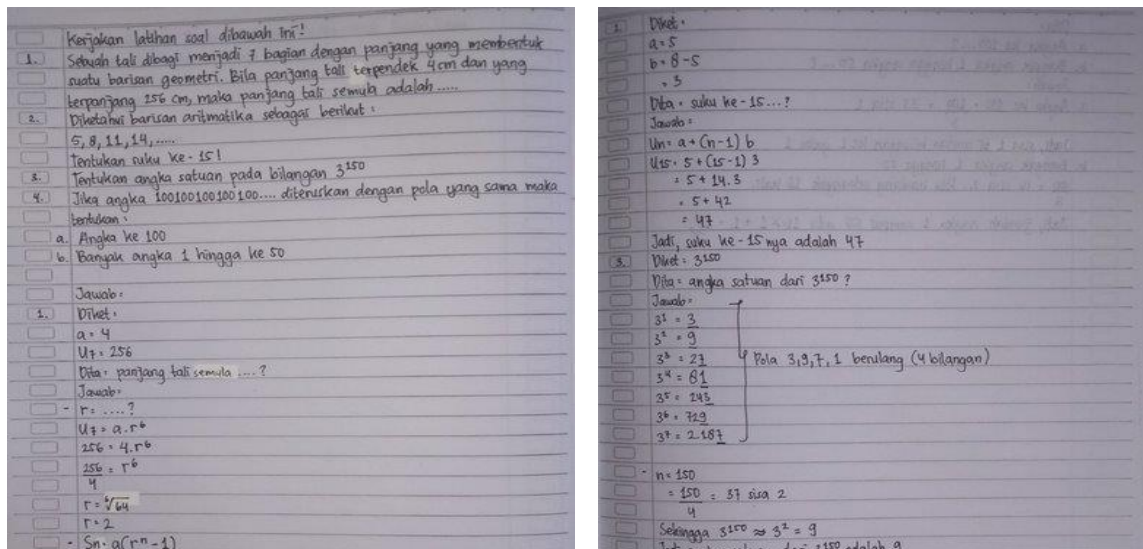 Kerjakan latihan soal dibawah ini!
1. Sebuah tali dibagi menjadi 7 bagian dengan panjang yang membentuk
suatu barisan geometri. Bila panjang tali terpendek 4 cm dan yang
terpanjang 256 cm, maka panjang tali semula adalah .....
2. Diketahui barisan aritmatika sebagai berikut :
5, 8, 11, 14, .....
Tentukan suku ke-15!
3. Tentukan angka satuan pada bilangan 3¹⁵⁰
4. Jika angka 100100100100100.... diteruskan dengan pola yang sama maka
tentukan :
a. Angka ke 100
b. Banyak angka 1 hingga ke 50
Jawab :
1. Diket :
a = 4
U7 = 256
Dita : panjang tali semula .... ?
Jawab :
- r = .... ?
U7 = a.r⁶
256 = 4.r⁶
256/4 = r⁶
r = ⁶√64
r = 2
- Sn = a(rⁿ - 1)
2. Diket :
a = 5
b = 8 - 5
= 3
Dita : suku ke-15...?
Jawab :
Un = a + (n-1) b
U15 = 5 + (15-1) 3
= 5 + 14.3
= 5 + 42
= 47
Jadi, suku ke-15 nya adalah 47
3. Diket : 3¹⁵⁰
Dita : angka satuan dari 3¹⁵⁰ ?
Jawab :
3¹ = 3
3² = 9
3³ = 27 Pola 3,9,7,1 berulang (4 bilangan)
3⁴ = 81
3⁵ = 243
3⁶ = 729
3⁷ = 2.187
- n = 150
= 150/4 = 37 sisa 2
Sehingga 3¹⁵⁰ ≈ 3² = 9
dari 3¹⁵⁰ adalah 9